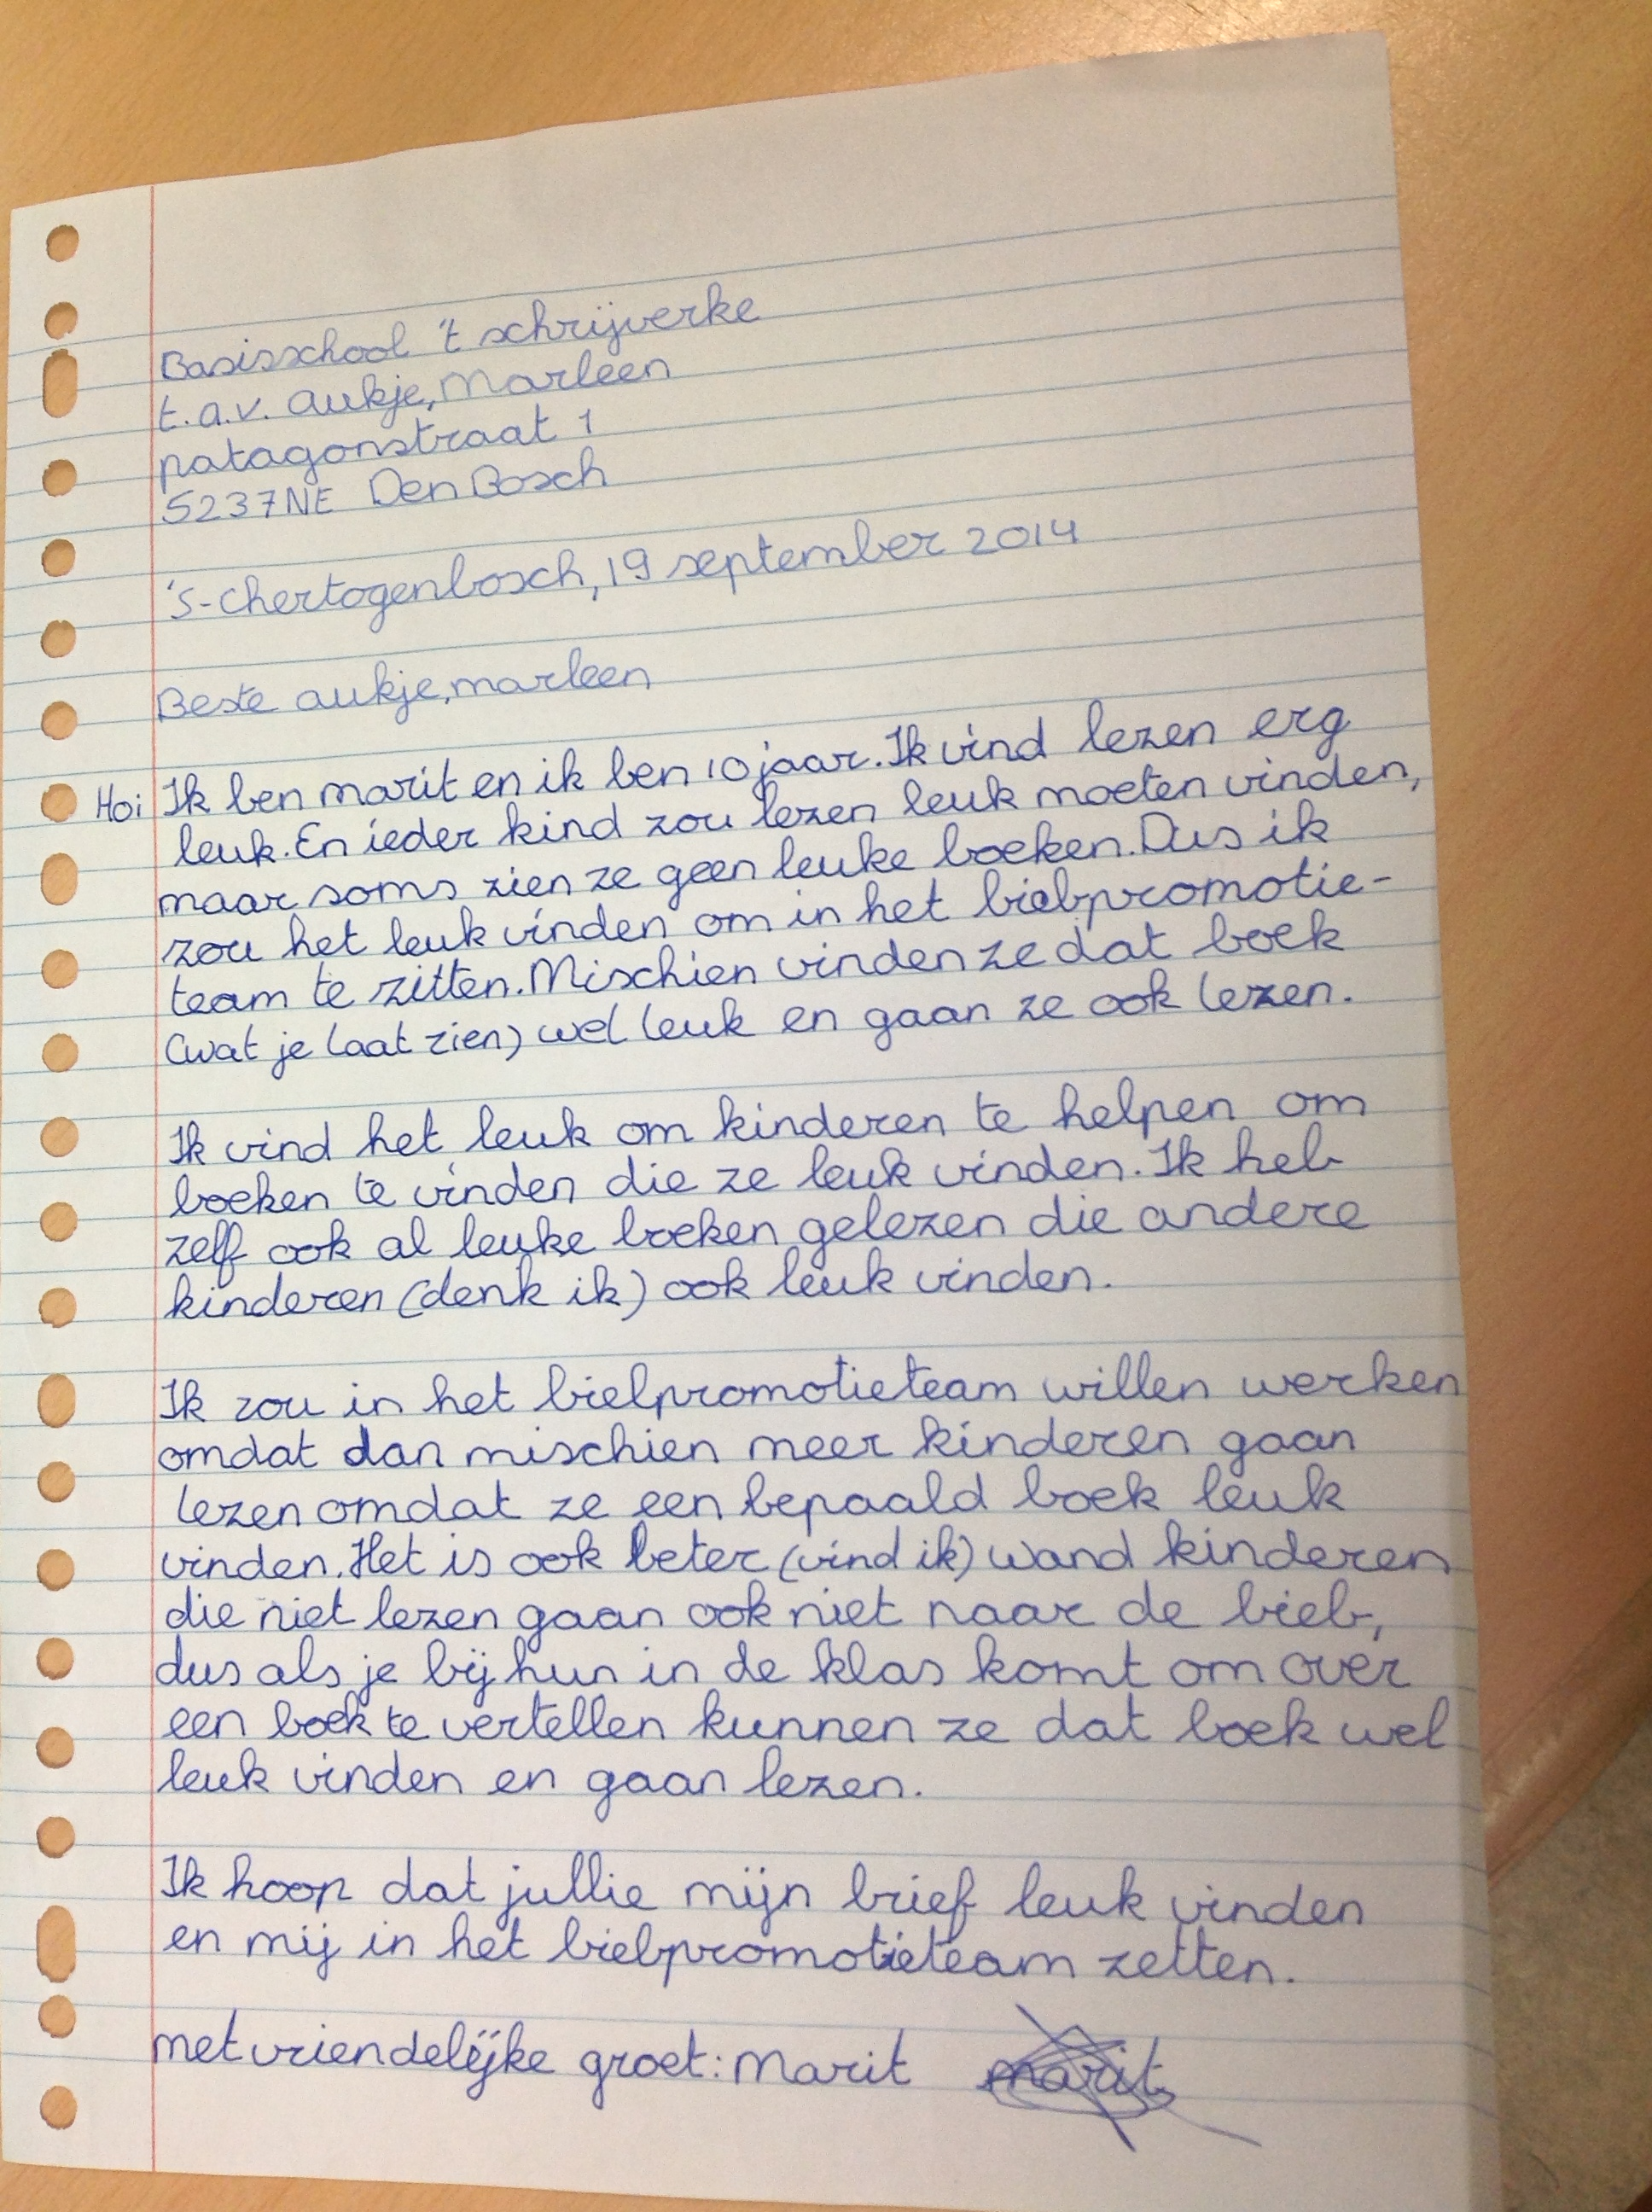 Basisschool 't schrijverke
t.a.v. aukje, Marleen
patagonstraat 1
5237NE Den Bosch
's-Chertogenbosch, 19 september 2014
Beste aukje, marleen
Hoi Ik ben marit en ik ben 10 jaar. Ik vind lezen erg
leuk. En ieder kind zou lezen leuk moeten vinden,
maar soms zien ze geen leuke boeken. Dus ik
zou het leuk vinden om in het biebpromotie-
team te zitten. Mischien vinden ze dat boek
(wat je laat zien) wel leuk en gaan ze ook lezen.
Ik vind het leuk om kinderen te helpen om
boeken te vinden die ze leuk vinden. Ik heb
zelf ook al leuke boeken gelezen die andere
kinderen (denk ik) ook leuk vinden.
Ik zou in het biebpromotieteam willen werken
omdat dan mischien meer kinderen gaan
lezen omdat ze een bepaald boek leuk
vinden. Het is ook beter (vind ik) wand kinderen
die niet lezen gaan ook niet naar de bieb,
dus als je bij hun in de klas komt om over
een boek te vertellen kunnen ze dat boek wel
leuk vinden en gaan lezen.
Ik hoop dat jullie mijn brief leuk vinden
en mij in het biebpromotieteam zetten.
met vriendelijke groet: Marit marit